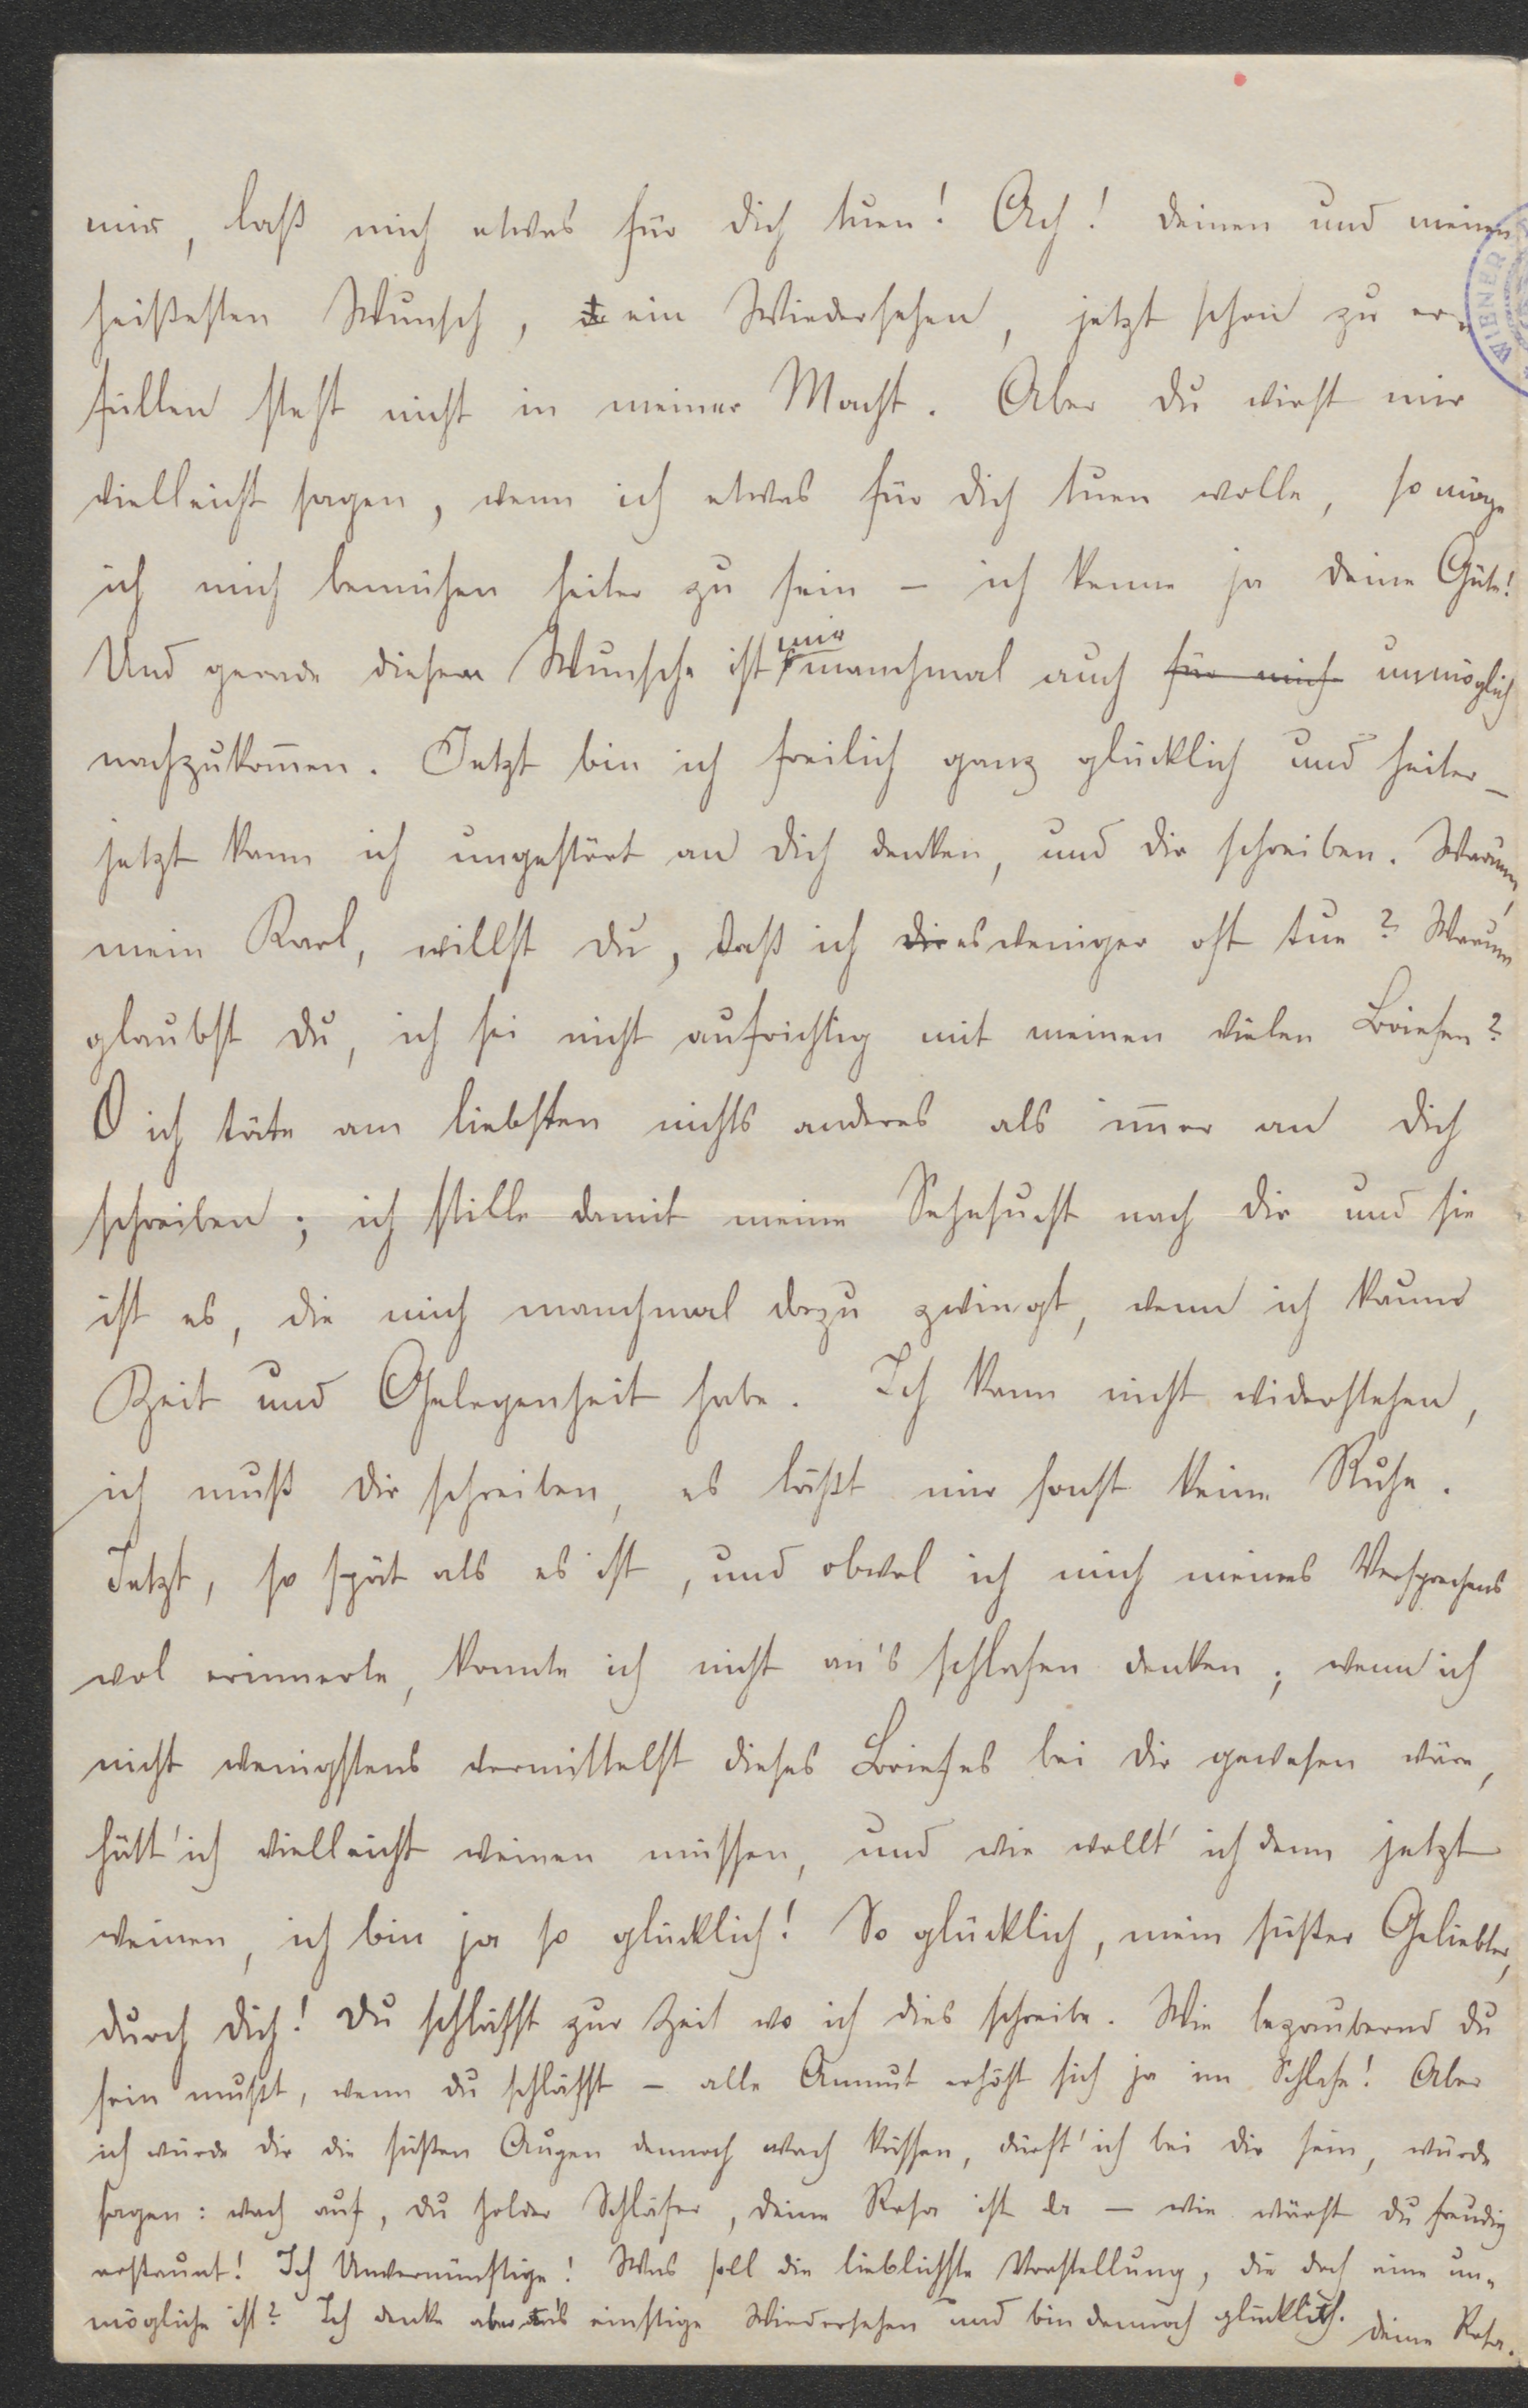 mir, laß mich etwas für dich tuen! Ach! deinen und meinen
heißesten Wunsch, ein Wiedersehen, jetzt schon zu er-
füllen steht nicht in meiner Macht. Aber du wirst mir
vielleicht sagen, wenn ich etwas für dich tuen wolle, so möge
ich mich bemühen heiter zu sein – ich kenne ja deine Güte!
Und gerade diesem Wunsche ist mir manchmal auch für mich unmöglich
nachzukom̅en. Jetzt bin ich freilich ganz glücklich und heiter –
jetzt kann ich ungestört an dich denken, und dir schreiben. Warum,
mein Karl, willst du, daß ich dir es weniger oft tue? Warum
glaubst du, ich sei nicht aufrichtig mit meinen vielen Briefen?
O ich täte am liebsten nichts anderes als im̅er an dich
schreiben; ich stille damit meine Sehnsucht nach dir und sie
ist es, die mich manchmal dazu zwingt, wenn ich kaum
Zeit und Gelegenheit habe. Ich kann nicht widerstehen,
ich muß dir schreiben, es läßt mir sonst keine Ruhe.
Jetzt, so spät als es ist, und obwol ich mich meines Versprechens
wol erinnerte, konnte ich nicht an's schlafen denken; wenn ich
nicht wenigstens vermittelst dieses Briefes bei dir gewesen wäre,
hätt' ich vielleicht weinen müssen, und wie wollt' ich denn jetzt
weinen, ich bin ja so glücklich! So glücklich, mein süßer Geliebter,
durch dich! Du schläfst zur Zeit wo ich dies schreibe. Wie bezaubernd du
sein mußt, wenn du schläfst – alle Anmut erhöht sich ja im Schlafe! Aber
ich würde dir die süßen Augen dennoch wach küssen, dürft' ich bei dir sein, würde
sagen: wach auf, du holder Schläfer, deine Rosa ist da – wie wärst du freudig
erstaunt! Ich Unvernünftige! Was soll die lieblichste Vorstellung, die doch eine un-
mögliche ist? Ich denke aber an's einstige Wiedersehen und bin dennoch glücklich. Deine Rosa.
WIENER